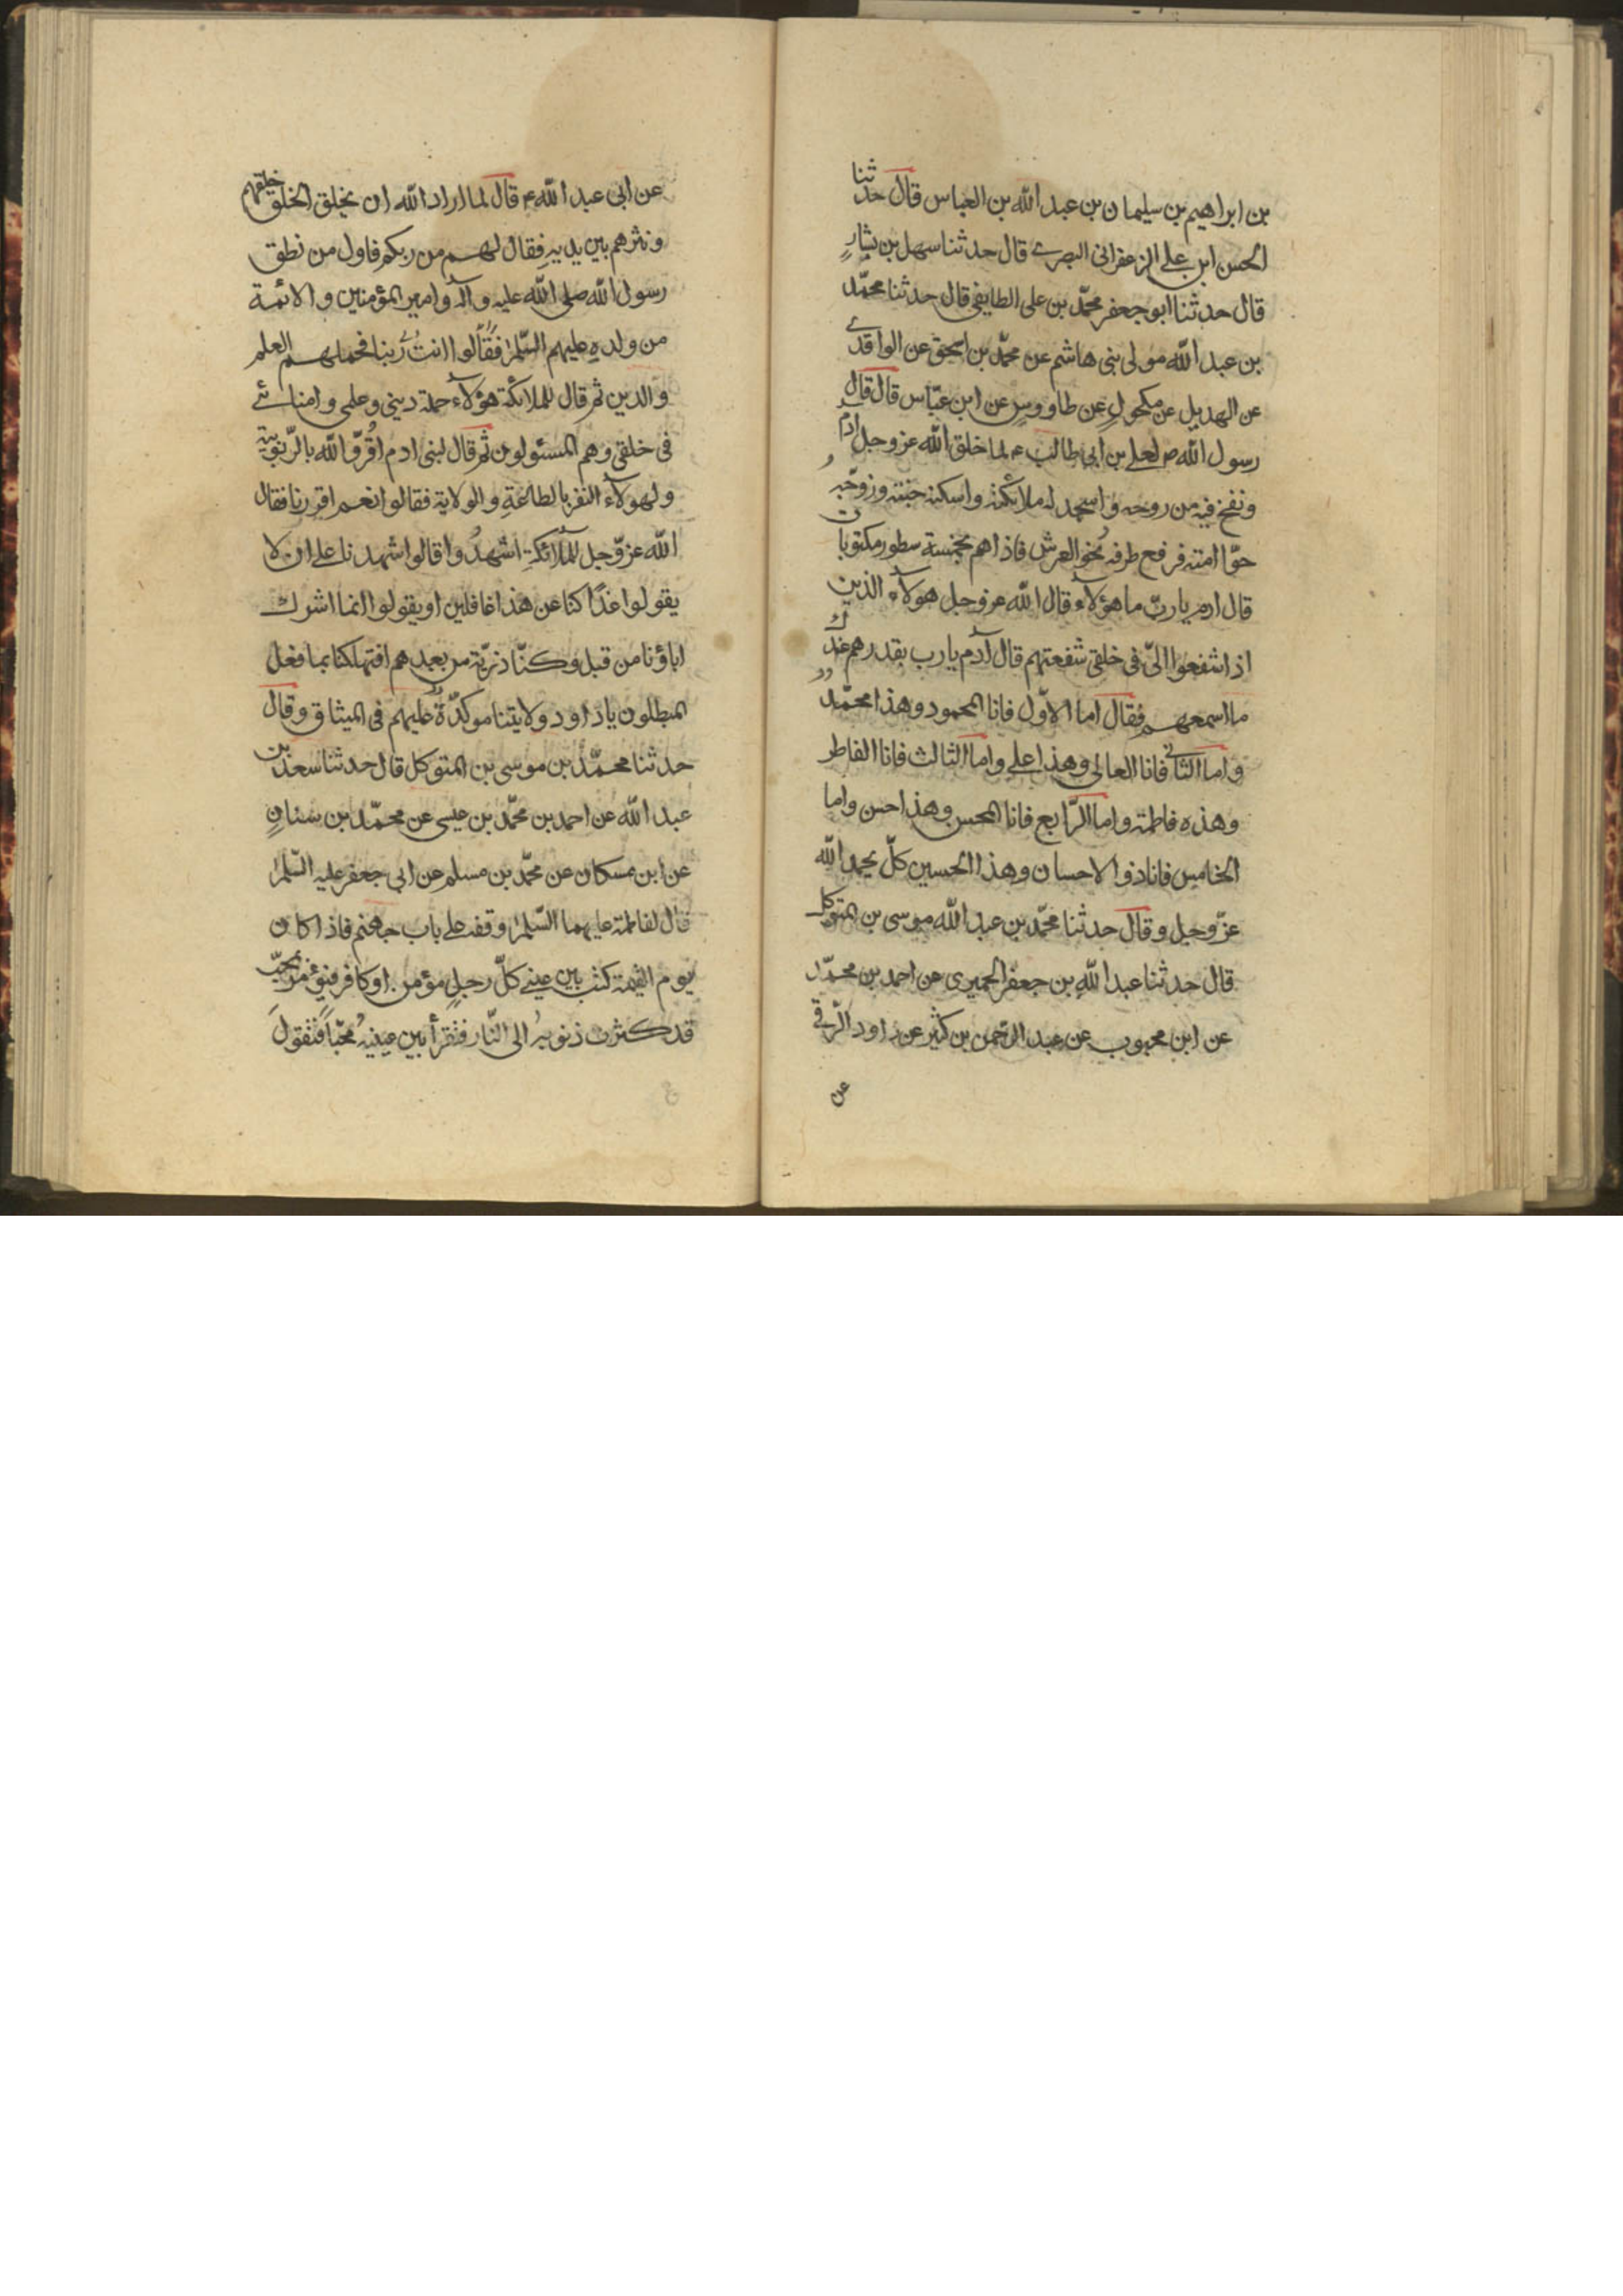 بن ابراهيم بن سليمان بن عبد الله بن العباس قال حدثنا
الحسن ابن علي الزعفراني البصرے قال حدثنا سهل بن بشارٍ
قال حدثنا ابو جعفر محمّد بن علی الطايفي قال حدثنا محمّد
بن عبد الله مولی بنی هاشم عن محمّد بن اسحق عن الواقدے
عن الهديل عن مكحولٍ عن طاووسٍ عن ابن عبّاس قال قال
رسول الله ص لعلي بن ابی طالب ع لما خلق الله عز وجل ادم
ونفخ فيه من روحه واسجد له ملائكته واسكنه جنته وزوّجه
حوّا امته فرفع طرفه نحو العرش فاذا هم بخمسة سطور مكتوبات
قال ادم يا ربّ ما هؤلآء قال الله عز وجل هولآء الذين
اذا شفعوا الیّ فی خلقی شفعتهم قال آدم يا رب بقدرهم عندك
ما اسمعهم فقال اما الاوّل فانا المحمود وهذا محمّد
واما الثانی فانا العالی وهذا علي واما الثالث فانا الفاطر
وهذه فاطمة واما الرّابع فانا المحسن وهذا حسن واما
الخامس فانا ذو الاحسان وهذا الحسين كلّ يحمد الله
عزّ وجل وقال حدثنا محمّد بن عبد الله موسی بن المتوكل
قال حدثنا عبد اللهِ بن جعفر الحميری عن احمد بن محمّد
عن ابن محبوب عن عبد الرّحمن بن كثير عن داود الرّقی
عن
عن ابی عبد الله ع قال لما اراد الله ان يخلق الخلق خلقهم
ونثرهم بين يديهِ فقال لهم من ربكم فاول من نطق
رسول الله صلی الله عليه وآله وامير المؤمنين والائمة
من ولدهِ عليهم السّلم فقالوا انت ربنا فحملهم العلم
والدين ثم قال للملائكة هؤلآء حملة دينی وعلمی وامنائے
فی خلقی وهم المسئولون ثم قال لبنی ادم اقرّوا لله بالرّبوبية
ولهولآء النفر بالطاعةِ والولاية فقالوا نعم اقررنا فقال
الله عزّ وجل للملآئكةِ اشهدُوا قالوا شهدنا علی ان لا
يقولوا غدًا كنا عن هذا غافلين او يقولوا انما اشرك
اباؤنا من قبل وكنّا ذريّة من بعدهم افتهلكنا بما فعل
المبطلون يا داود ولايتنا موكدّة عليهم فی الميثاق وقال
حدثنا محمّد بن موسی بن المتوكل قال حدثنا سعد بن
عبد الله عن احمد بن محمّد بن عيسی عن محمّد بن سنانٍ
عن ابن مسكان عن محمّد بن مسلم عن ابی جعفر عليه السّلم
قال لفاطمة عليهما السّلم وقفة علی باب جهنم فاذا كان
يوم القيمة كتب بين عينی كلّ رجلٍ مؤمن او كافر فيؤمر بمحبّ
قد كثرت ذنوبهُ الی النّار فتقرأ بين عينيهُ محبّاً فتقولَ